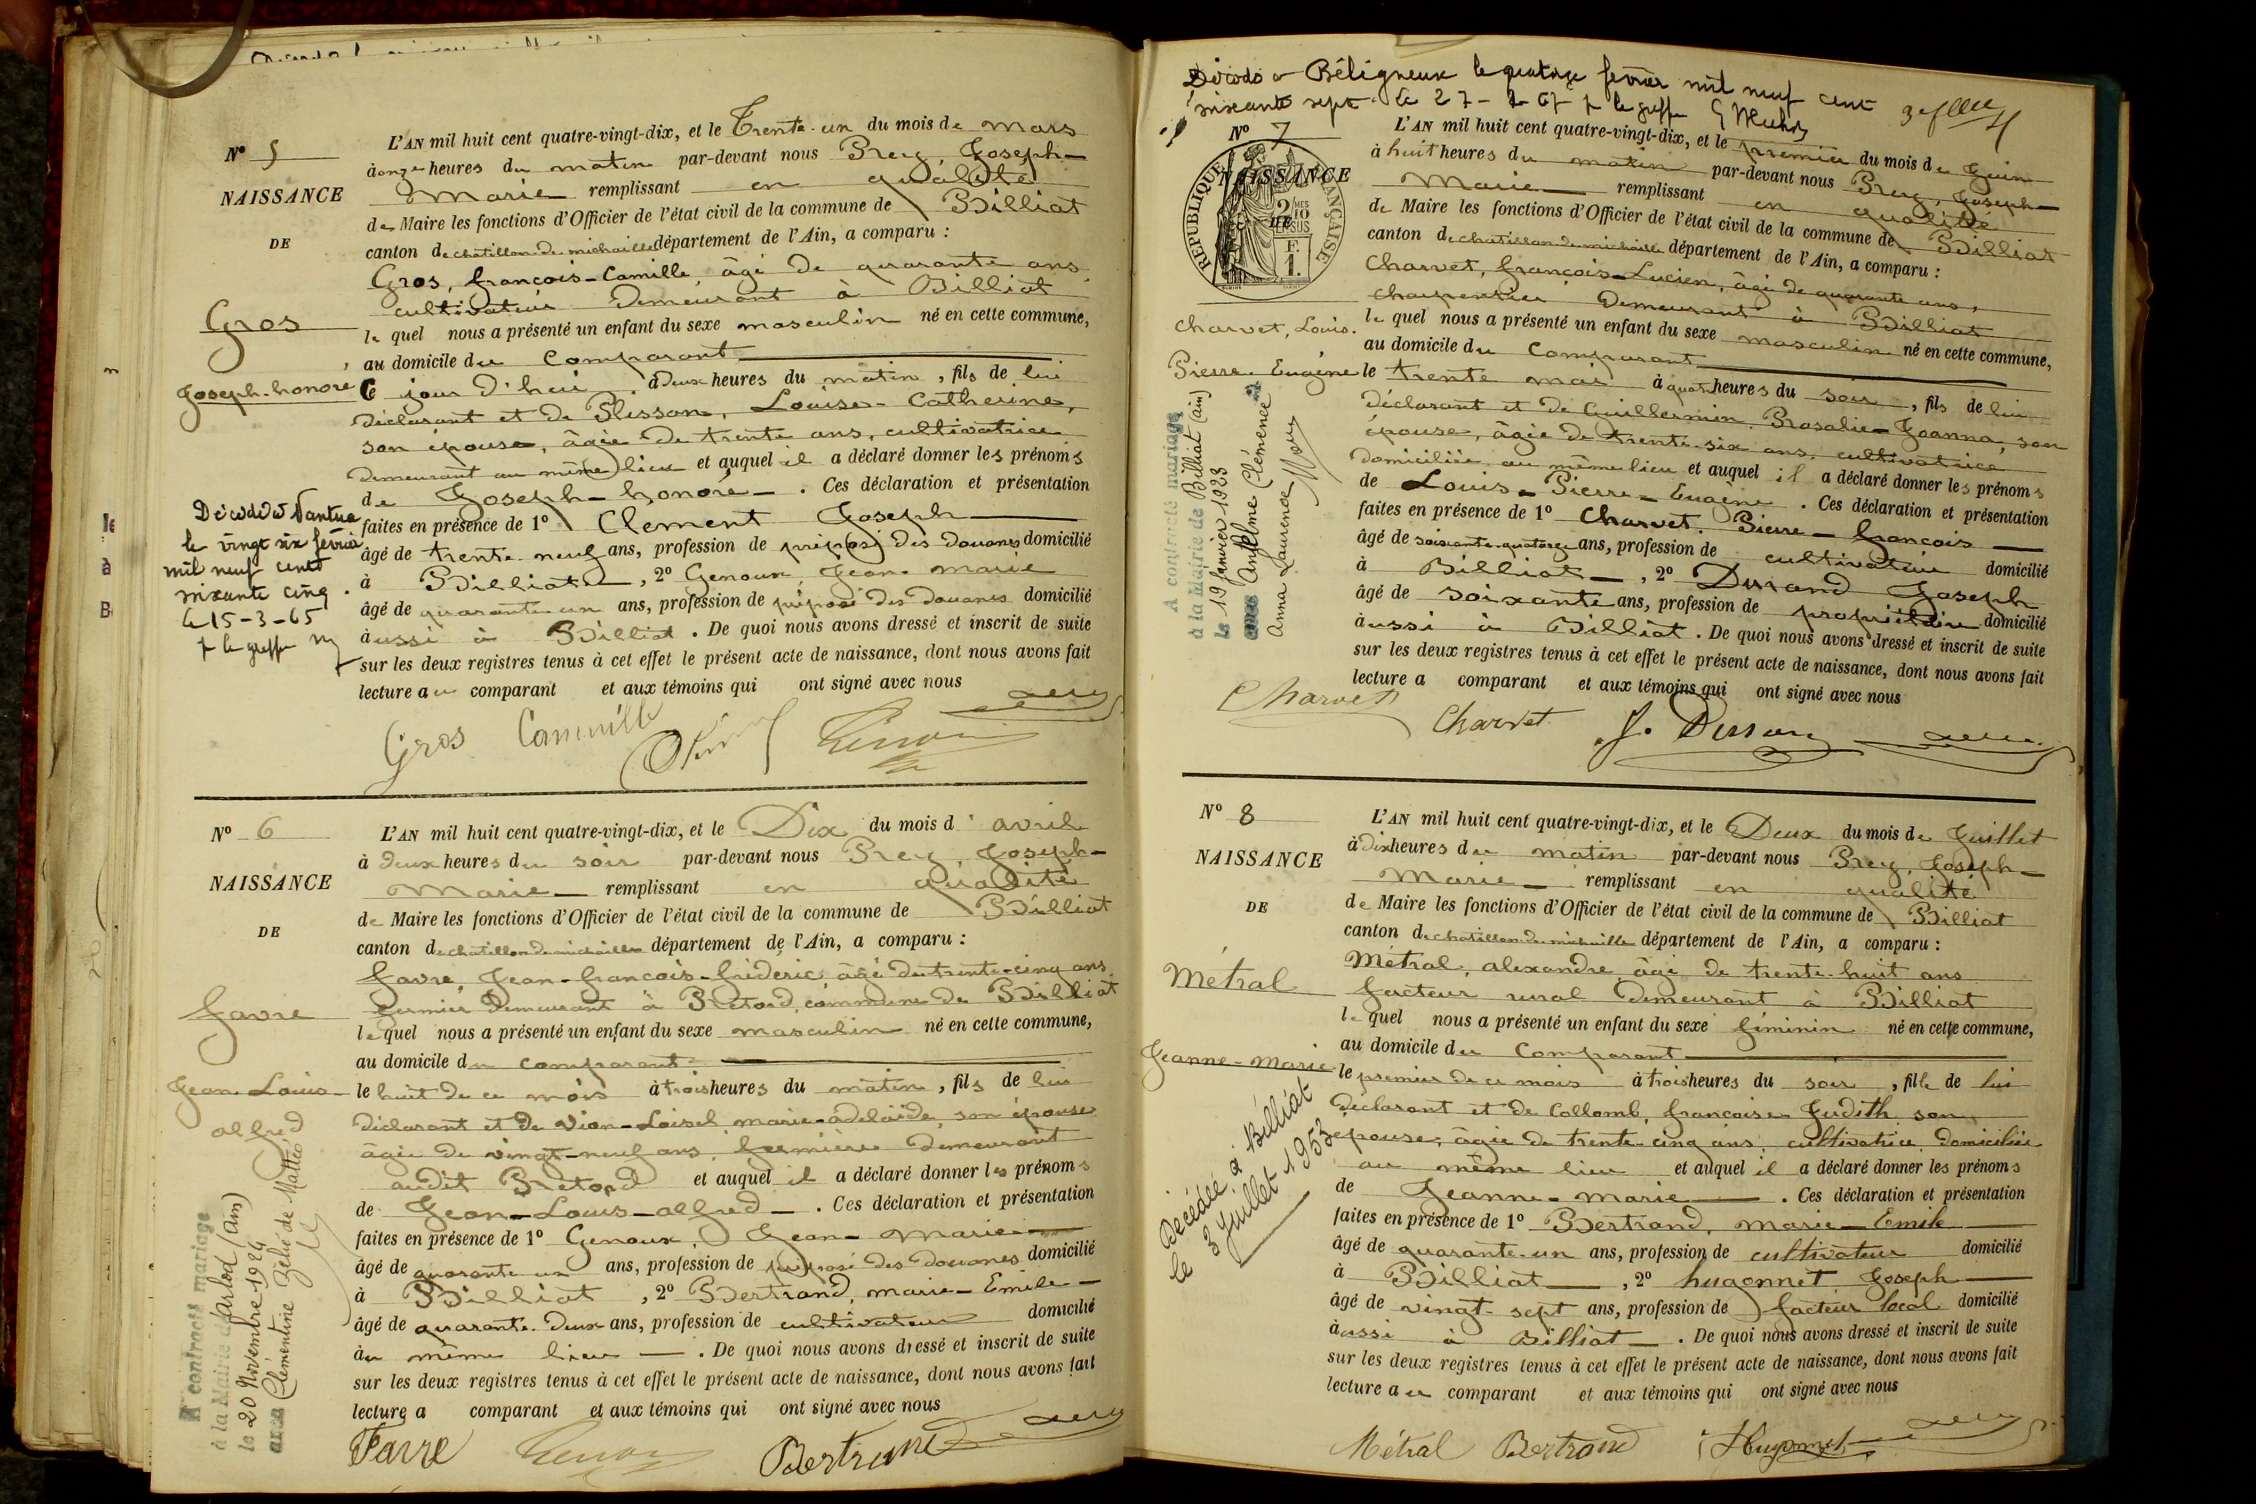 N° 5
NAISSANCE
DE
Gros
Joseph-honoré
Décédé à Nantua
le vingt six février
mil neuf cent
soixante cinq.
Le 15-3-65
p le greffier
L'AN mil huit cent quatre-vingt-dix, et le Trente-un du mois de mars
à onze heures du matin par-devant nous Prey, Joseph-
Marie remplissant en qualité
de Maire les fonctions d'Officier de l'état civil de la commune de Billiat
canton de chatillon de michaille département de l'Ain, a comparu :
Gros, françois-Camille âgé de quarante ans
cultivateur demeurant à Billiat
le quel nous a présenté un enfant du sexe masculin né en cette commune,
au domicile du comparant
Ce jour d'hui à deux heures du matin, fils de lui
déclarant et de Plisson, Louise-Catherine,
son épouse, âgée de trente ans, cultivatrice
demeurant au même lieu et auquel il a déclaré donner les prénoms
de Joseph-honoré-. Ces déclaration et présentation
faites en présence de 1° Clement Joseph
âgé de trente-neuf ans, profession de préposé des douanes domicilié
à Billiat, 2° Genoux, Jean-marie
âgé de quarante-un ans, profession de préposé des douanes domicilié
aussi à Billiat. De quoi nous avons dressé et inscrit de suite
sur les deux registres tenus à cet effet le présent acte de naissance, dont nous avons fait
lecture au comparant et aux témoins qui ont signé avec nous
Gros Camille
N° 6
NAISSANCE
DE
favre
Jean-Louis-
alfred
A contracté mariage
à la Mairie d'Arlod (Ain)
le 20 Novembre 1924
avec Clémentine Zélie de Mattéo
L'AN mil huit cent quatre-vingt-dix, et le Dix du mois d'avril
à deux heures du soir par-devant nous Prey, Joseph-
Marie- remplissant en qualité
de Maire les fonctions d'Officier de l'état civil de la commune de Billiat
canton de chatillon de michaille département de l'Ain, a comparu :
favre, Jean-françois-frédéric, âgé de trente-cinq ans
fermier demeurant à Retord, commune de Billiat
le quel nous a présenté un enfant du sexe masculin né en cette commune,
au domicile du comparant
le huit de ce mois à trois heures du matin, fils de lui
déclarant et de Vion-Loisel marie-adelaïde, son épouse
âgée de vingt-neuf ans, fermière demeurant
audit Retord et auquel il a déclaré donner les prénoms
de Jean-Louis-alfred-. Ces déclaration et présentation
faites en présence de 1° Genoux, Jean-Marie
âgé de quarante un ans, profession de préposé des douanes domicilié
à Billiat, 2° Bertrand, marie-Emile-
âgé de quarante-deux ans, profession de cultivateur domicilié
au même lieu. De quoi nous avons dressé et inscrit de suite
sur les deux registres tenus à cet effet le présent acte de naissance, dont nous avons fait
lecture a comparant et aux témoins qui ont signé avec nous
Favre Bertrand
Décédé à Béligneux le quatorze février mil neuf cent
soixante sept. Le 27-2-67 p le greffier
N° 7
NAISSANCE
DE
RÉPUBLIQUE FRANÇAISE
2/10 EN SUS
F. 1.
Charvet, Louis.
Pierre-Eugène
A contracté mariage
à la Mairie de Billiat (ain)
le 19 Janvier 1923
avec Anthelme Clémence
Anna Laurence
L'AN mil huit cent quatre-vingt-dix, et le premier du mois de Juin
à huit heures du matin par-devant nous Prey, Joseph-
Marie- remplissant en qualité
de Maire les fonctions d'Officier de l'état civil de la commune de Billiat
canton de chatillon de michaille département de l'Ain, a comparu :
Charvet, françois-Lucien, âgé de quarante ans,
charpentier demeurant à Billiat
le quel nous a présenté un enfant du sexe masculin né en cette commune,
au domicile du comparant
le trente mai à quatre heures du soir, fils de lui
déclarant et de Guillermin, Rosalie-Joanna, son
épouse, âgée de trente-six ans, cultivatrice
domiciliée au même lieu et auquel il a déclaré donner les prénoms
de Louis-Pierre-Eugène. Ces déclaration et présentation
faites en présence de 1° Charvet, Pierre-françois
âgé de soixante-quatorze ans, profession de cultivateur domicilié
à Billiat, 2° Durand Joseph
âgé de soixante ans, profession de propriétaire domicilié
aussi à Billiat. De quoi nous avons dressé et inscrit de suite
sur les deux registres tenus à cet effet le présent acte de naissance, dont nous avons fait
lecture a comparant et aux témoins qui ont signé avec nous
Charvet Charvet
N° 8
NAISSANCE
DE
Métral
Jeanne-Marie
Décédée à Billiat
le 3 Juillet 1953
L'AN mil huit cent quatre-vingt-dix, et le Deux du mois de Juillet
à dix heures du matin par-devant nous Prey, Joseph-
Marie- remplissant en qualité
de Maire les fonctions d'Officier de l'état civil de la commune de Billiat
canton de chatillon de michaille département de l'Ain, a comparu :
Métral, alexandre âgé de trente-huit ans
facteur rural demeurant à Billiat
le quel nous a présenté un enfant du sexe féminin né en cette commune,
au domicile du comparant
le premier de ce mois à trois heures du soir, fille de lui
déclarant et de Collomb, françoise Judith, son
épouse, âgée de trente cinq ans, cultivatrice domiciliée
au même lieu et auquel il a déclaré donner les prénoms
de Jeanne-Marie. Ces déclaration et présentation
faites en présence de 1° Bertrand, marie-Emile
âgé de quarante-un ans, profession de cultivateur domicilié
à Billiat, 2° hugonnet Joseph
âgé de vingt-sept ans, profession de facteur local domicilié
aussi à Billiat. De quoi nous avons dressé et inscrit de suite
sur les deux registres tenus à cet effet le présent acte de naissance, dont nous avons fait
lecture au comparant et aux témoins qui ont signé avec nous
Métral Bertrand Hugonnet